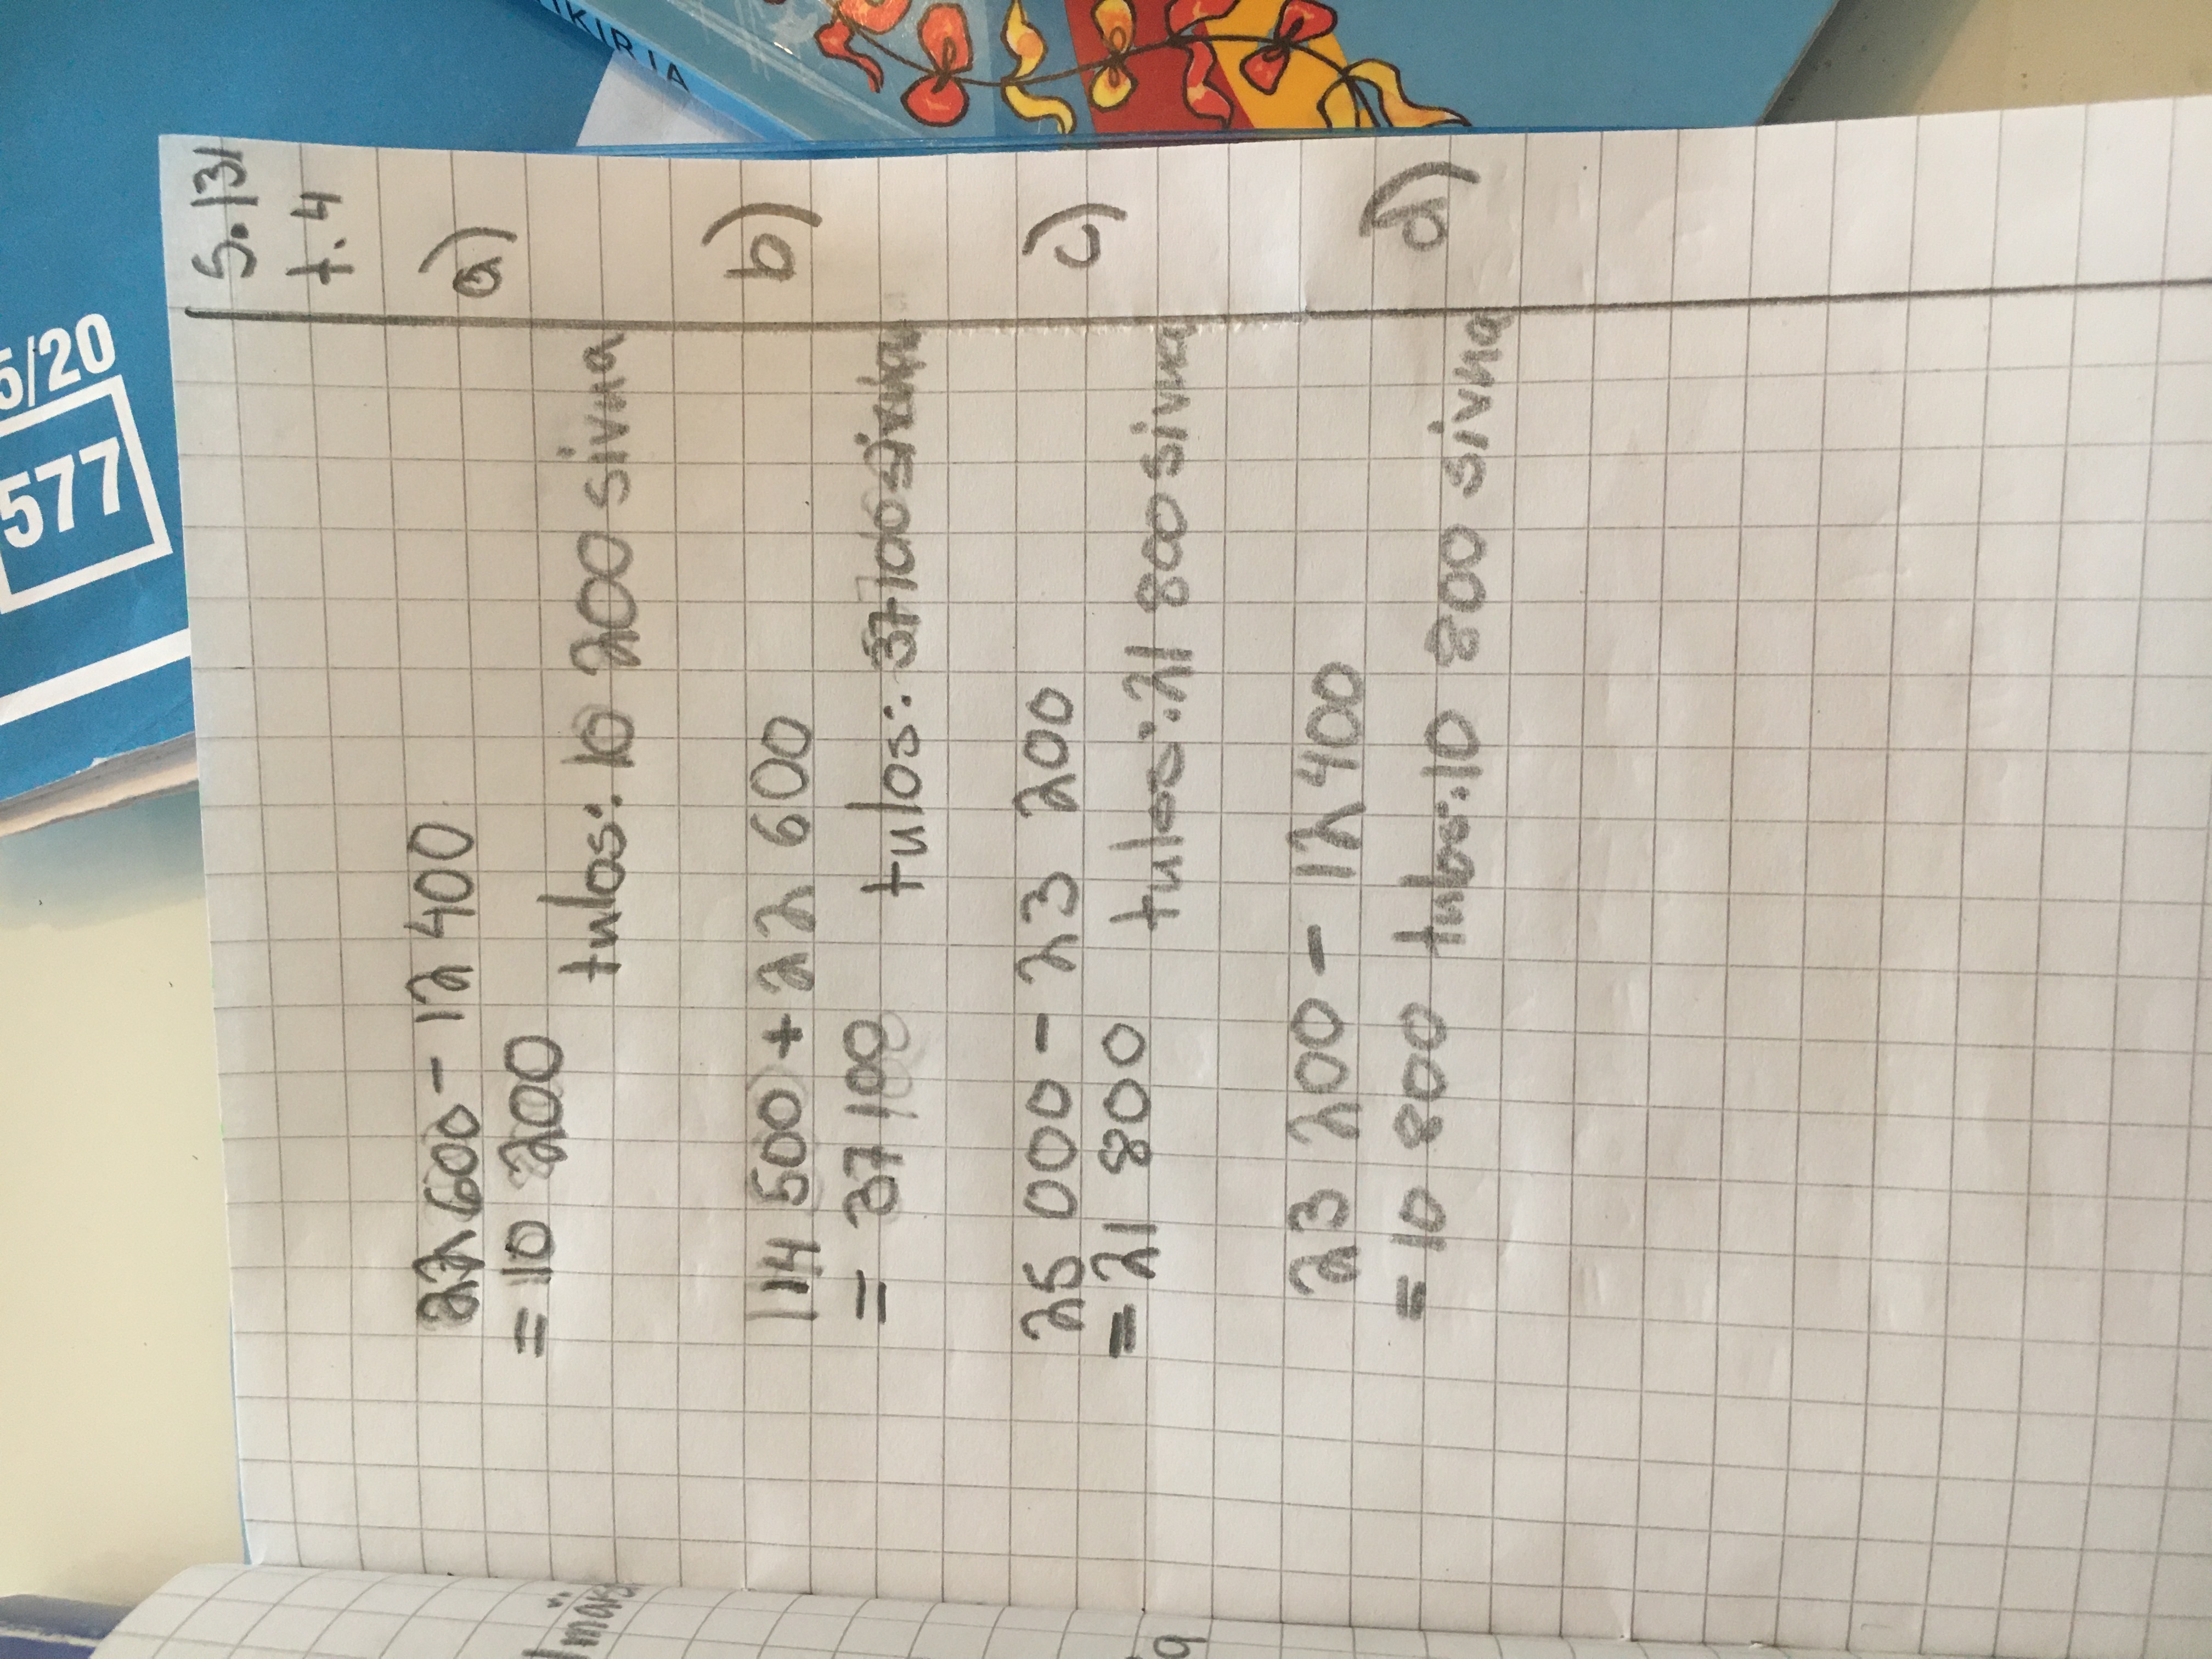 S. 131
t. 4
a) 22 600 - 12 400
= 10 200
tulos: 10 200 sivua
b) 14 500 + 22 600
= 37 100
tulos: 37100 sivua
c) 25 000 - 23 200
= 21 800
tulos: 21 800 sivua
d) 23 200 - 12 400
= 10 800 tulos: 10 800 sivua
5/20
577
IKIRJA